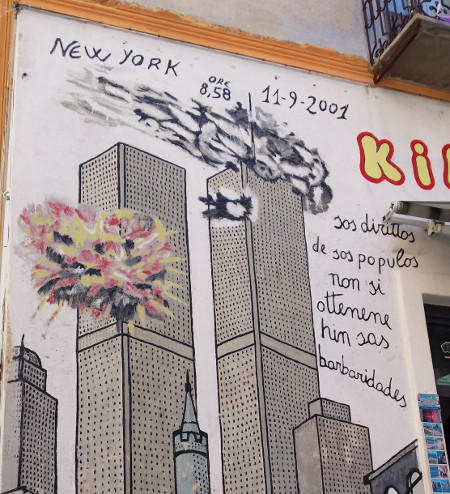 NEW YORK
ORE
8,58
11-9-2001
Kil
sos dirittos
de sos populos
non si
ottenene
hin sas
barbaridades